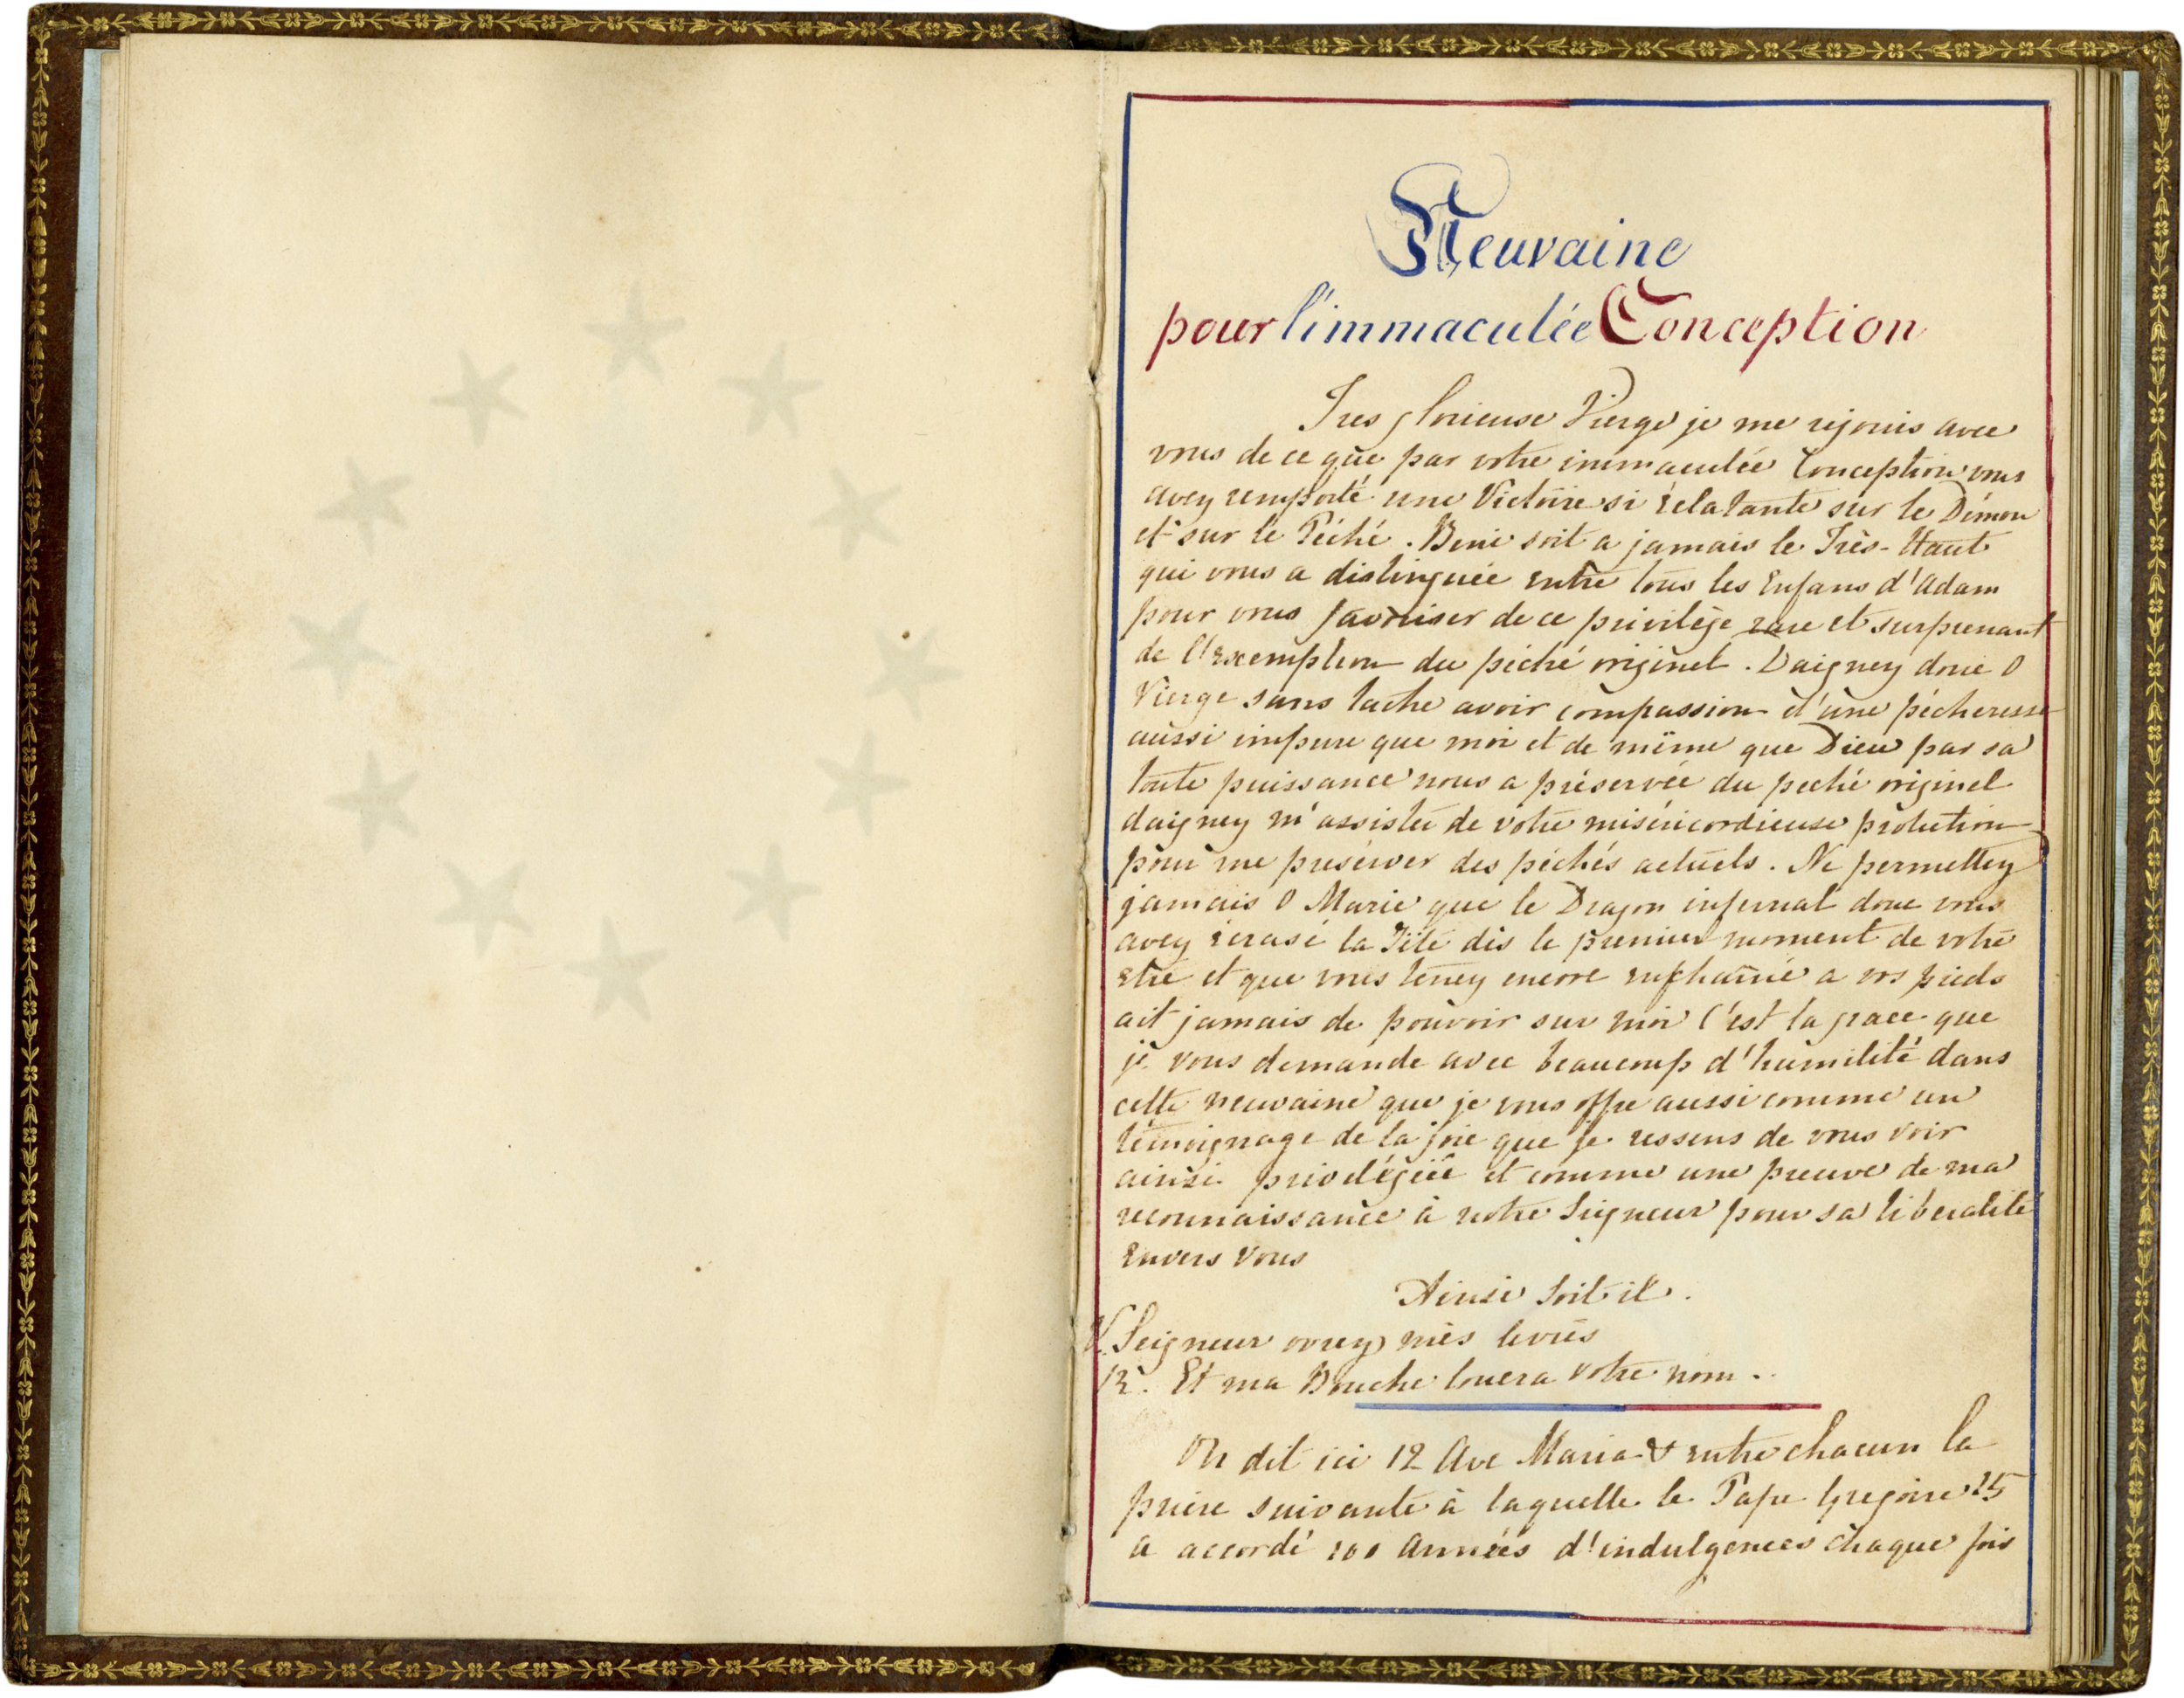 Neuvaine
pour l'immaculée Conception
Tres glorieuse Vierge je me rejouis avec
vous de ce que par votre immaculée Conception vous
avez remporté une Victoire si éclatante sur le Démon
et sur le Péché. Beni soit a jamais le Très-Haut
qui vous a distinguée entre tous les Enfans d'Adam
pour vous favoriser de ce privilège rare et surprenant
de l'exemption du péché originel. Daignez donc O
Vierge sans tache avoir compassion d'une pécheresse
aussi impure que moi et de même que Dieu par sa
toute puissance nous a préservée du peché originel
daignez m'assister de votre miséricordieuse protection
pour me preserver des péchés actuels. Ne permettez
jamais O Marie que le Dragon infernal donc vous
avez écrasé la Tête dès le premier moment de votre
etre et que vous tenez encore enchainé a vos pieds
ait jamais de pouvoir sur moi C'est la grace que
je vous demande avec beaucoup d'humilité dans
cette neuvaine que je vous offre aussi comme un
témoignage de la joie que je ressens de vous voir
ainsi privilégiée et comme une preuve de ma
reconnaissance à notre Seigneur pour sa libéralité
Envers Vous
Ainsi Soit il.
V. Seigneur ovrez mes levres
R. Et ma Bouche louera Votre nom.
On dit ici 12 Ave Maria & entre chacun la
prière suivante à laquelle le Pape Gregoire 15
a accordé 100 Années d'indulgences chaque fois